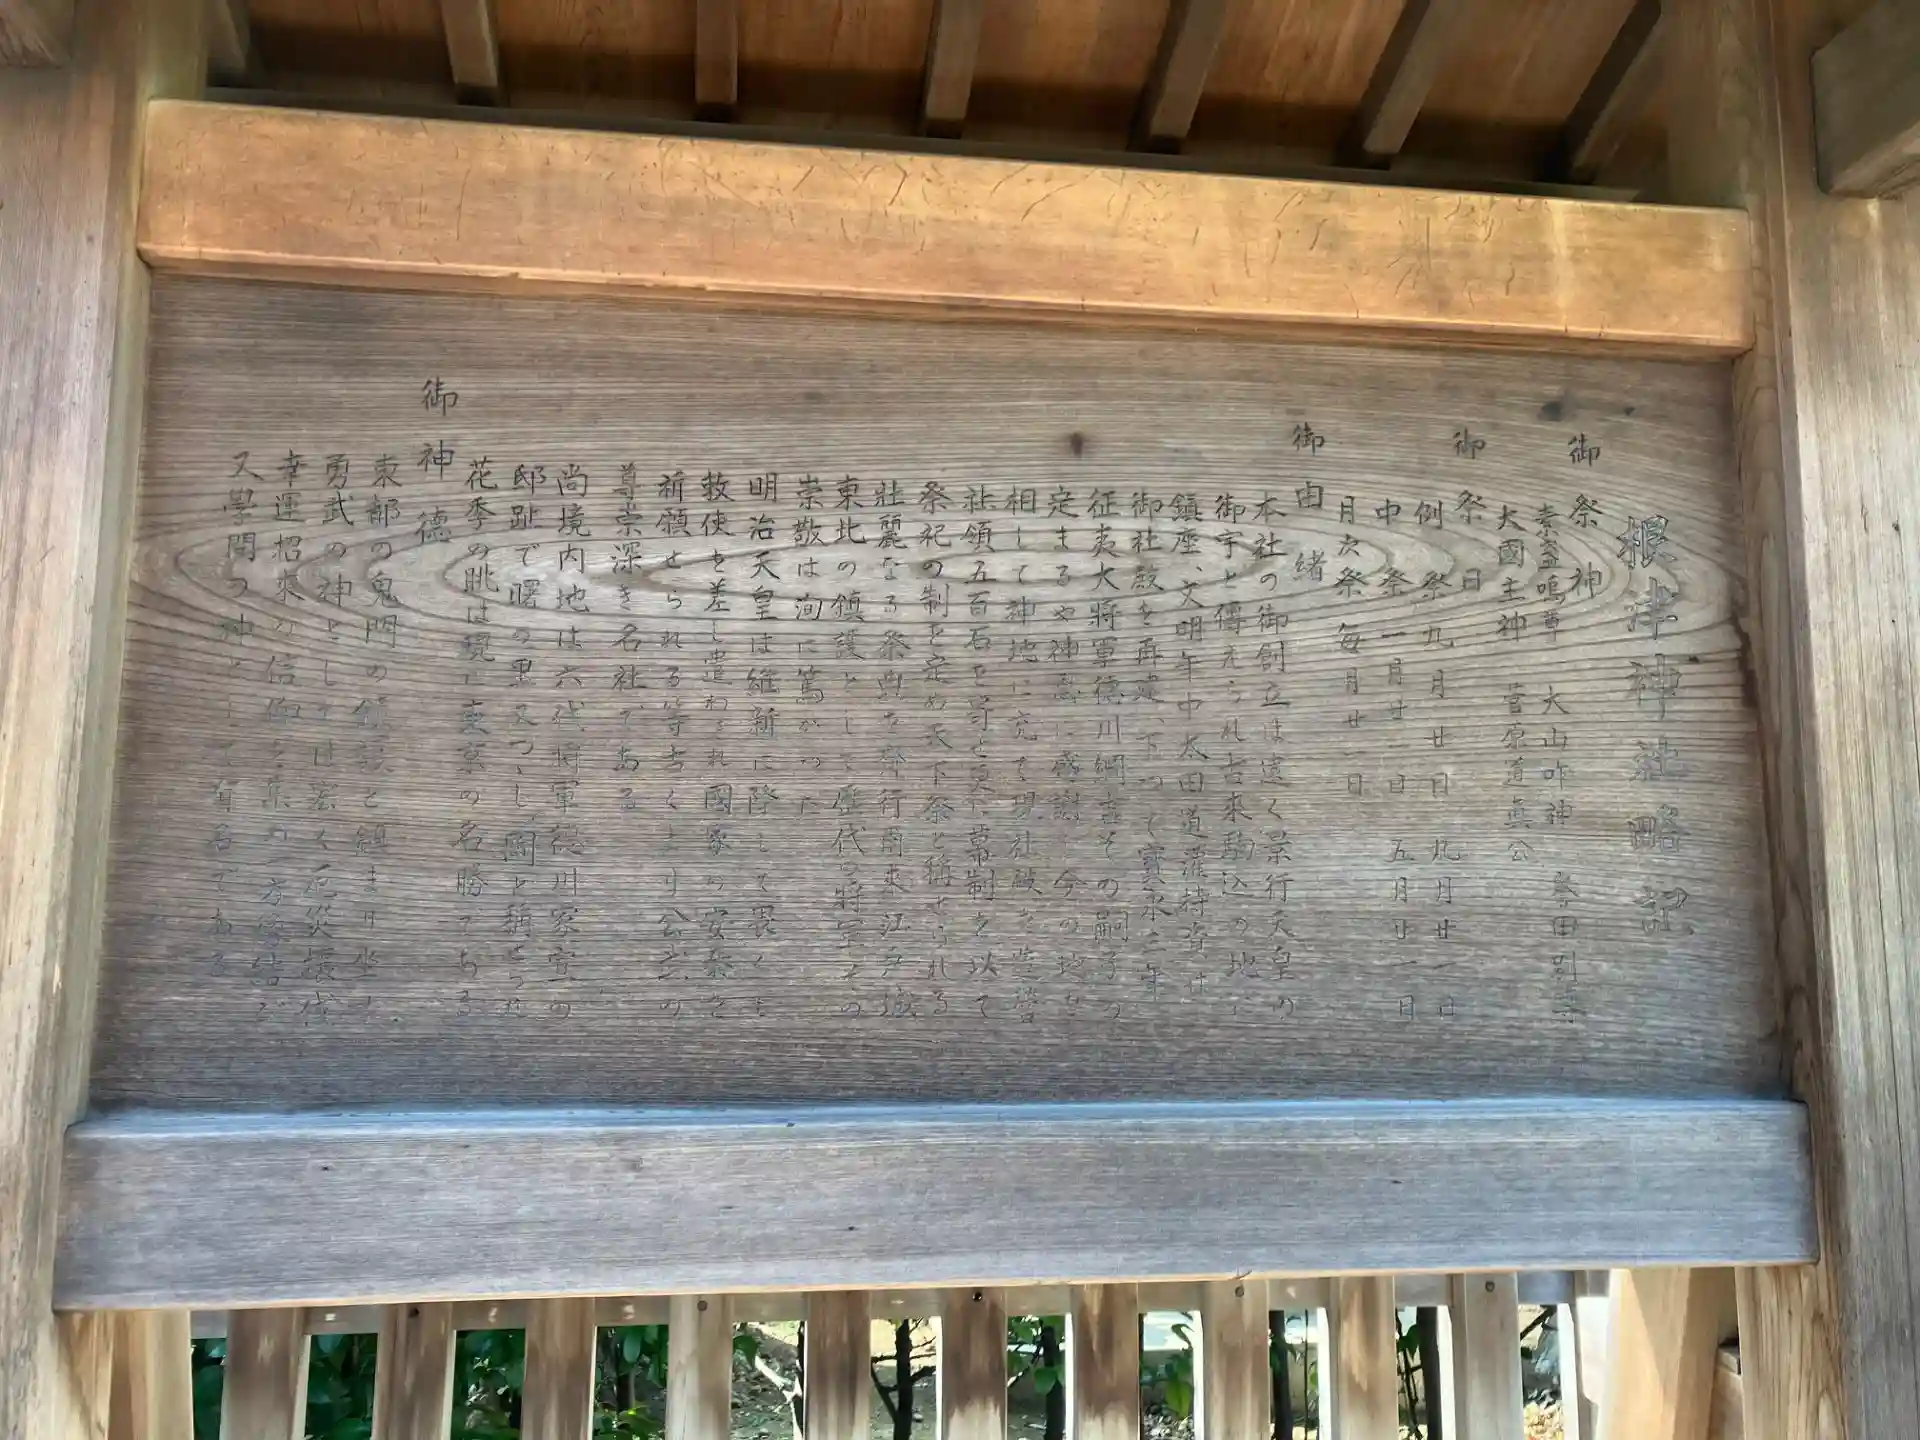 根津神社略記
御祭神
素盞嗚尊 大山咋神 誉田別尊
大國主神 菅原道眞公
御祭日
例祭 九月廿日 九月廿一日
中祭 一月廿一日 五月廿一日
月次祭 毎月廿一日
御由緒
本社の御創立は遠く景行天皇の
御宇と傳えられ古来駒込の地に
鎮座、文明年中太田道灌持資は
御社殿を再建、下つて寳永三年
征夷大将軍徳川綱吉その嗣子の
定まるや神慮に感謝し今の地を
相して神地に充て現社殿を造營
社領五百石を寄せ更に幕制を以て
祭祀の制を定め天下祭と稱せられる
壯麗なる祭典を斎行爾来江戸城
東北の鎮護として歴代の将軍その
崇敬は洵に篤かった
明治天皇は維新に際して畏くも
敕使を差し遣わされ國家の安泰を
祈願せられる等古くより公武の
尊崇深き名社である
尚境内地は六代将軍徳川家宣の
邸趾で曙の里又つつじヶ岡と稱せられ
花季の眺は現に東京の名勝である
御神徳
東都の鬼門の鎮護と鎮まり坐し
勇武の神としては宏く厄災攘伐
幸運招来の信仰を集め
又學問の神として有名である